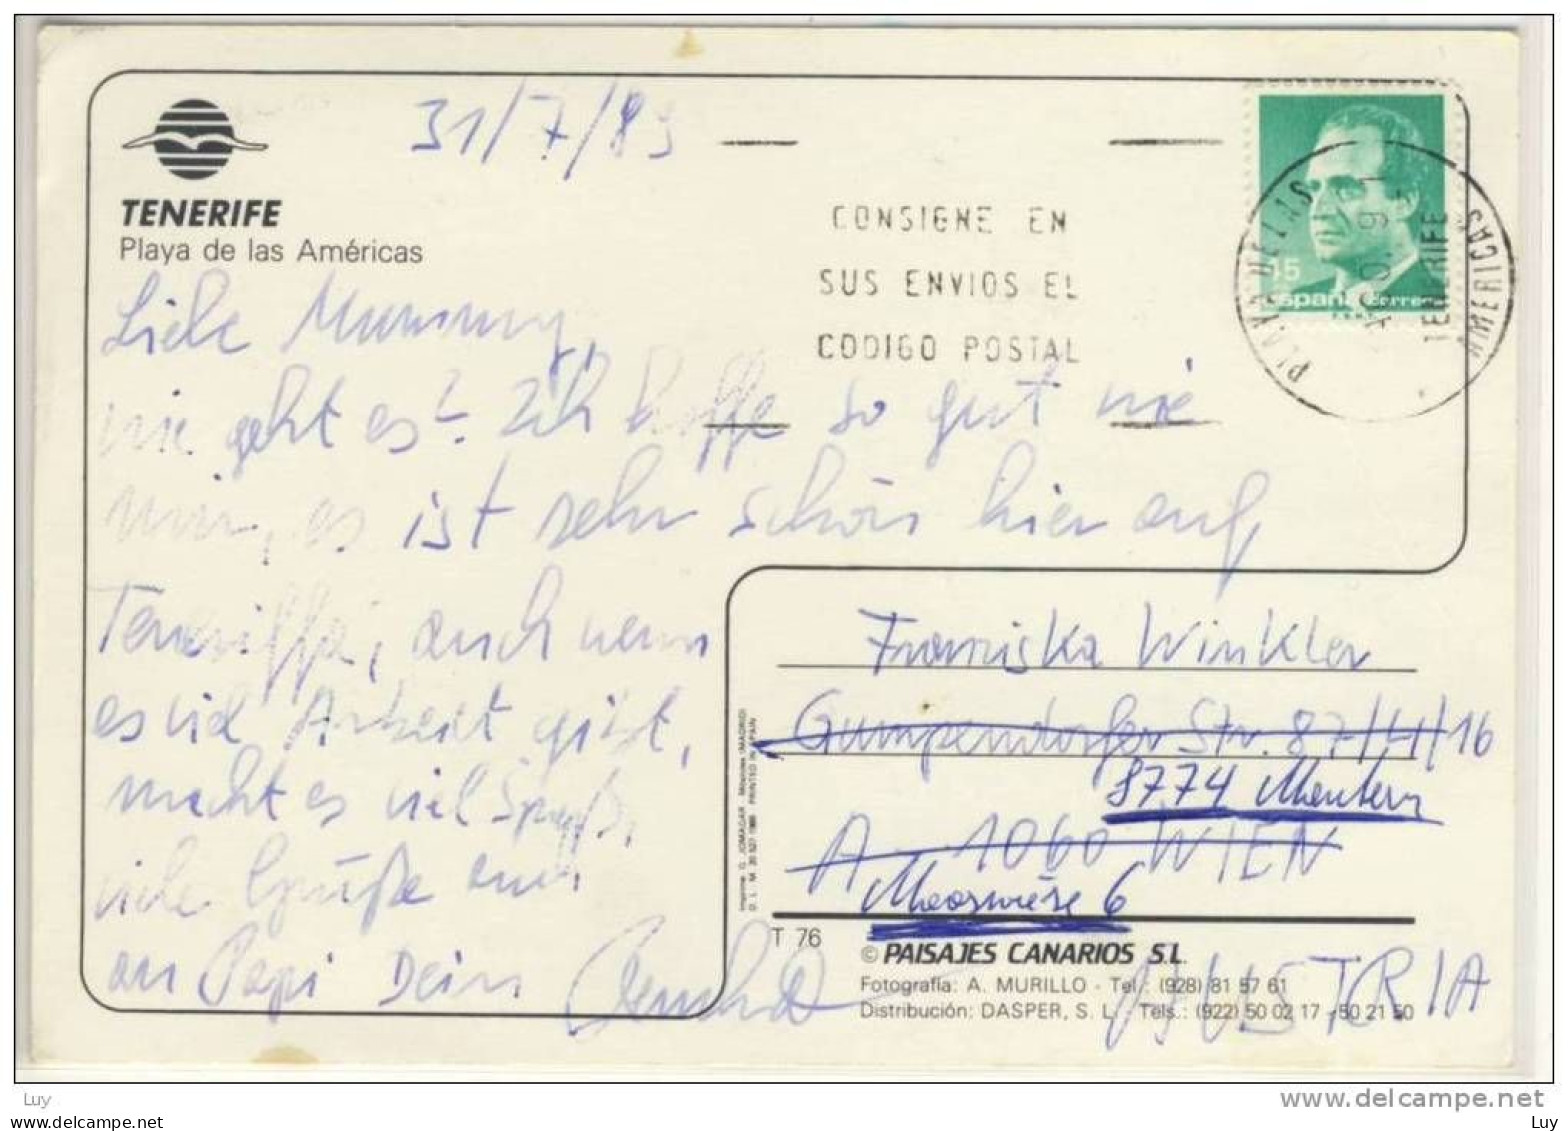 31/7/89
TENERIFE
Playa de las Américas
CONSIGNE EN
SUS ENVIOS EL
CODIGO POSTAL
PLAYA DE LAS AMERICAS
TENERIFE
España correos
Liebe Mummy,
wie geht es? Ich hoffe so gut wie
mir, es ist sehr schön hier auf
Teneriffa, auch wenn
es viel Arbeit gibt,
macht es viel Spaß,
viele Grüße auch
an Papi Dein
Franziska Winkler
Gumpendorfer Str. 87/4/16
8774 Mautern
A-1060 WIEN
Mooswiese 6
AUSTRIA
T 76
© PAISAJES CANARIOS S.L.
Fotografia: A. MURILLO - Tel.: (928) 81 57 61
Distribución: DASPER, S. L. Tels.: (922) 50 02 17 - 50 21 50
PRINTED IN SPAIN
Luy
www.delcampe.net
Luy
Luy